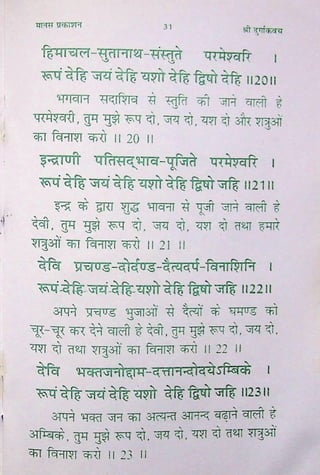 मानस प्रकाशन 31 श्री दुर्गाकवच
हिमाचल-सुतानाथ-संस्तुते परमेश्वरि ।
रूपं देहि जयं देहि यशो देहि द्विषो देहि ॥20॥
भगवान सदाशिव से स्तुति की जाने वाली हे
परमेश्वरी, तुम मुझे रूप दो, जय दो, यश दो और शत्रुओं
का विनाश करो ॥ 20 ॥
इन्द्राणी पतिसद्भाव-पूजिते परमेश्वरि ।
रूपं देहि जयं देहि यशो देहि द्विषो जहि ॥21॥
इन्द्र के द्वारा शुद्ध भावना से पूजी जाने वाली हे
देवी, तुम मुझे रूप दो, जय दो, यश दो तथा हमारे
शत्रुओं का विनाश करो ॥ 21 ॥
देवि प्रचण्ड-दोर्दण्ड-दैत्यदर्प-विनाशिनि ।
रूपं-देहि-जयं-देहि-यशो देहि द्विषो जहि ॥22॥
अपने प्रचण्ड भुजाओं से दैत्यों के घमण्ड को
चूर-चूर कर देने वाली हे देवी, तुम मुझे रूप दो, जय दो,
यश दो तथा शत्रुओं का विनाश करो ॥ 22 ॥
देवि भक्तजनोद्दाम-दत्तानन्दोदयेऽम्बिके ।
रूपं देहि जयं देहि यशो देहि द्विषो जहि ॥23॥
अपने भक्त जन का अत्यन्त आनन्द बढ़ाने वाली हे
अम्बिके, तुम मुझे रूप दो, जय दो, यश दो तथा शत्रुओं
का विनाश करो ॥ 23 ॥